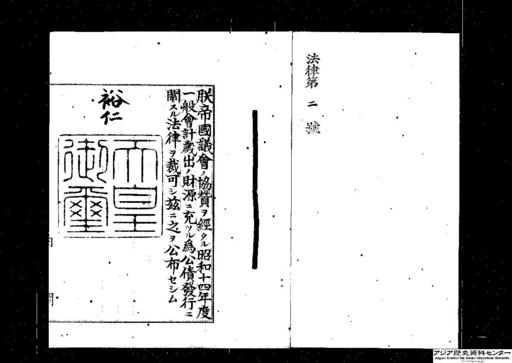 法律第二號
朕帝國議會ノ協贊ヲ經タル昭和十四年度
一般會計歲出ノ財源ニ充ツル爲公債發行ニ
關スル法律ヲ裁可シ玆ニ之ヲ公布セシム
裕仁
天皇
御璽
アジア歴史資料センター
Japan Center for Asian Historical Records